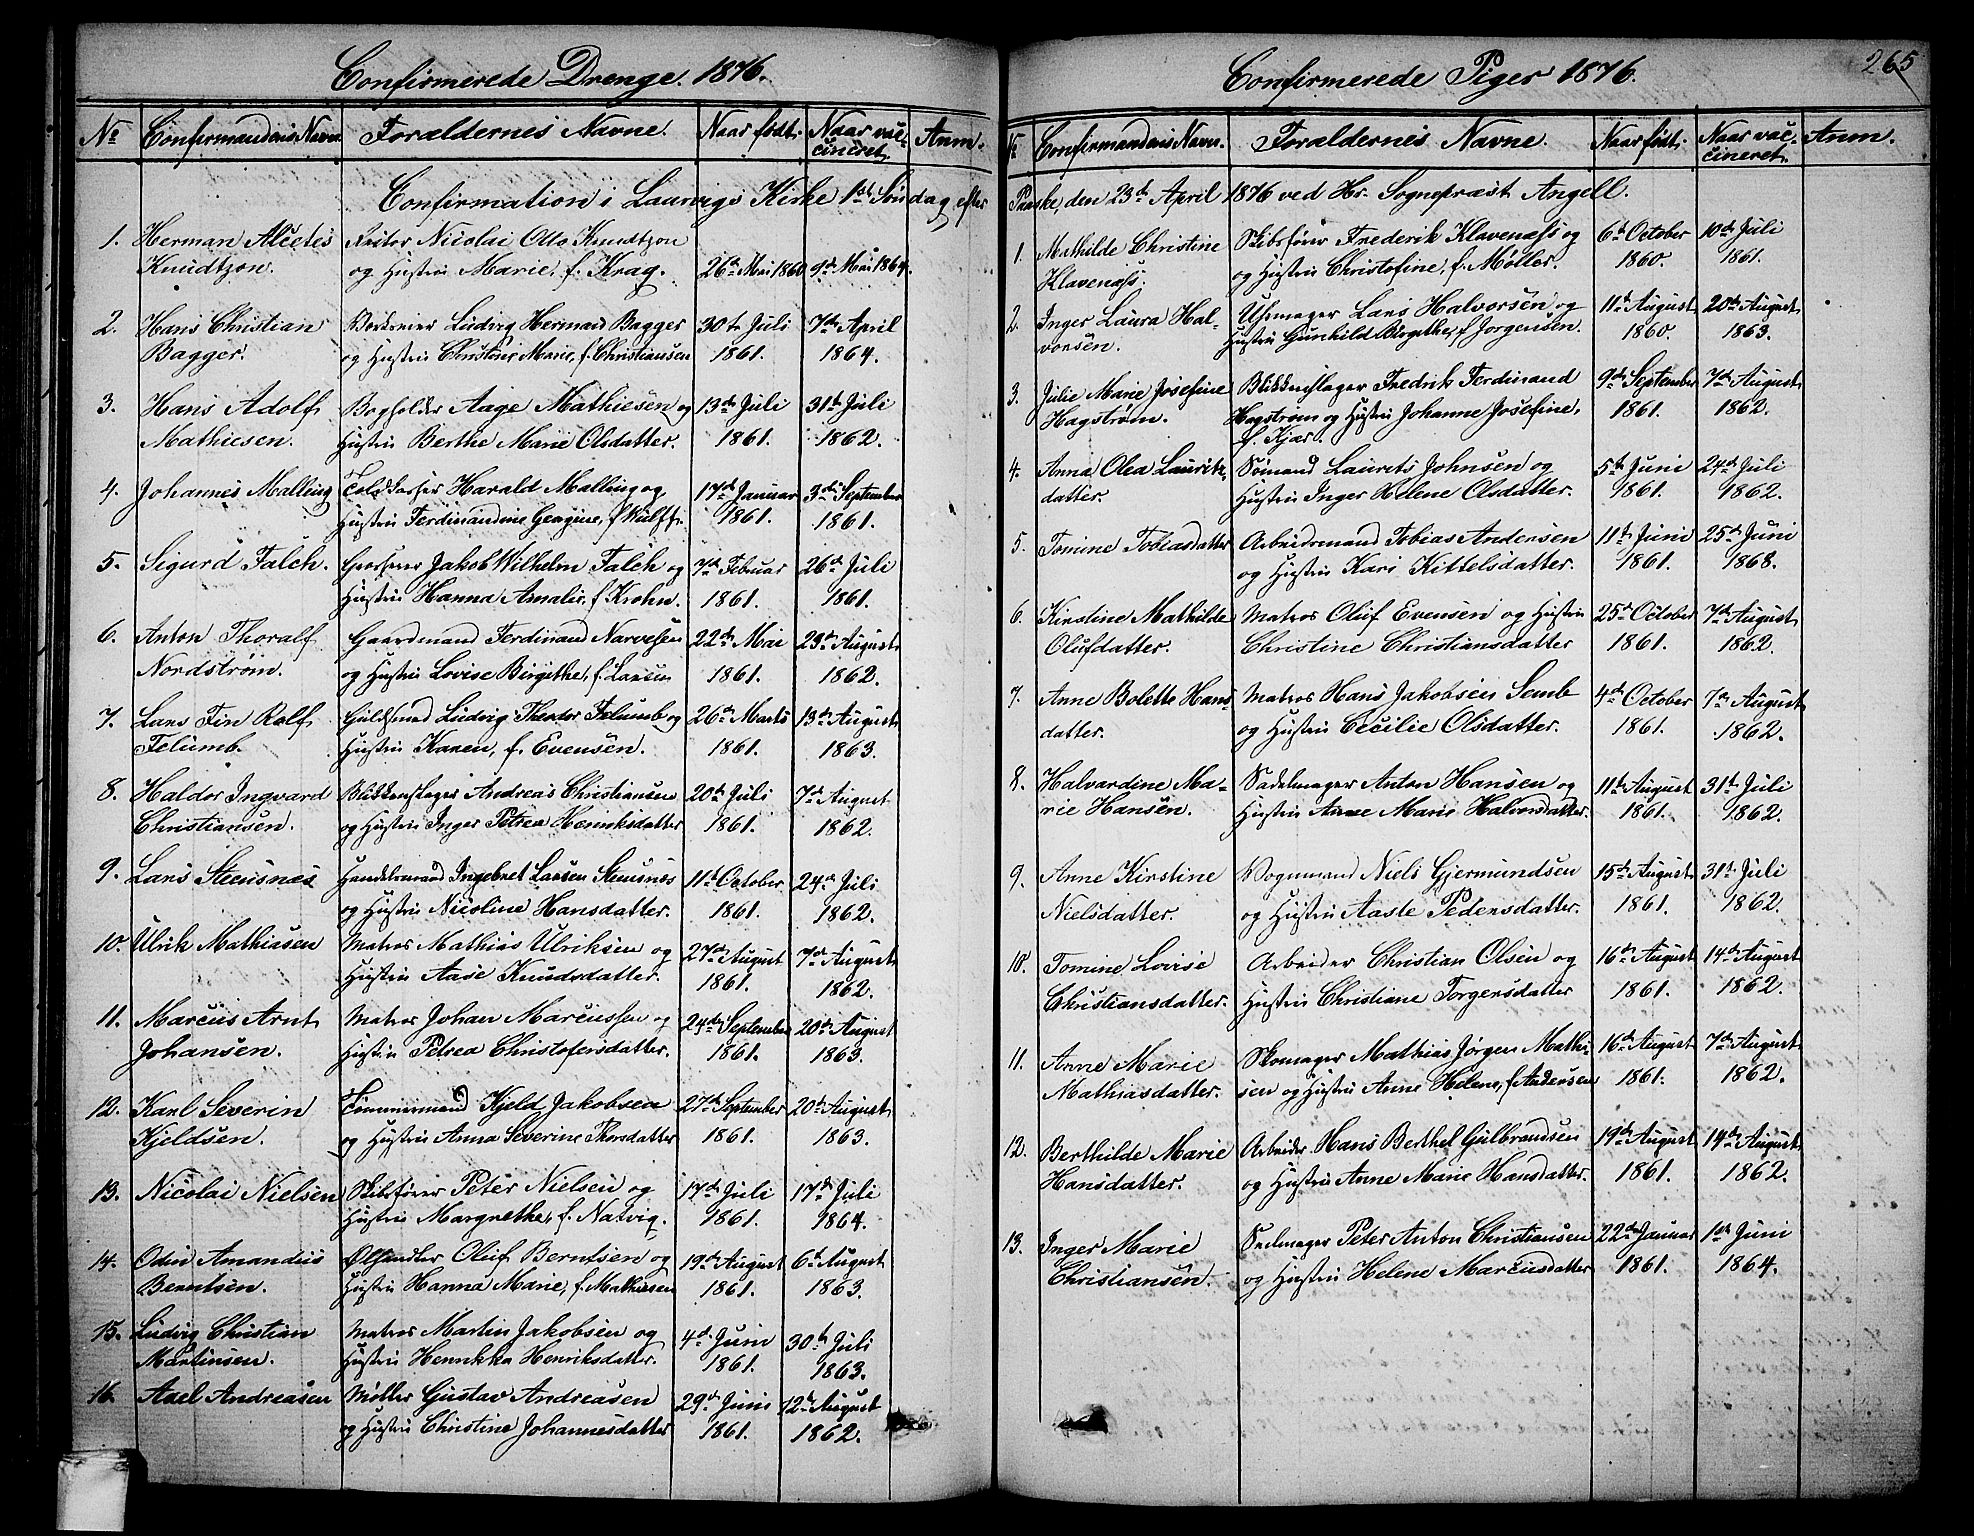 Confirmerede Drenge. 1876.
No Confirmandens Navn. Forældernes Navne. Naar født. Naar vaccineret. Anm.
Confirmation i Laurvigs Kirke 1st Søndag efter
1. Herman Alcetes Rector Nicolai Otto Knudtzon
Knudtzon. og Hustru Marie, f. Krag. 26de Mai 1860. 9de Mai 1864.
2. Hans Christian Ludvig Herman Bagger 30te Juli 7de April
Bagger. og Hustru Christine Marie, f. Christiansen 1861. 1864.
3. Hans Adolf Bogholder Aage Mathiesen og 13de Juli 31te Juli
Mathiesen. Hustru Berthe Marie Olsdatter. 1861. 1862.
4. Johannes Malling Toldkasser Harald Malling og 17de Januar 3de September
Hustru Ferdinandine Georgine, f. Wulff. 1861. 1861.
5. Sigurd Falch. Grosserer Jakob Wilhelm Falch og 7de Februar 26de Juli
Hustru Hanna Amalie, f. Krohn. 1861. 1861.
6. Anton Thoralf Gaardmand Ferdinand Narvesen 22de Mai 23de August
Nordstrøm. og Hustru Lovise Birgithe, f. Larsen 1861. 1862.
7. Lars Fin Rolf Guldsmed Ludvig Theodor Felumb og 26de Marts 13de August
Felumb. Hustru Karen, f. Evensen. 1861. 1863.
8. Haldor Ingvard Blikkenslager Andreas Christiansen 20de Juli 7de August
Christiansen. og Hustru Inger Petrea Henriksdatter 1861. 1862.
9. Lars Steensnæs Handelsmand Ingebret Larsen Steensnæs 11te October 24de Juli
og Hustru Nicoline Hansdatter. 1861. 1862.
10. Ulrik Mathiasen Matros Mathias Ulriksen og 27de August 7de August
Hustru Aase Knudsdatter. 1861. 1862.
11. Marcus Arnt Matros Johan Marcussen og 24de September 20de August
Johansen. Hustru Petrea Christofersdatter. 1861. 1863.
12. Karl Severin Tømmermand Kjeld Jakobsen 27de September 20de August
Kjeldsen. og Hustru Anna Severine Thorsdatter 1861. 1863.
13. Nicolai Nielsen Skibsfører Peter Nielsen og 17de Juli 17de Juli
Hustru Margrethe, f. Natvig. 1861. 1864.
14. Odin Amandus Ølhandler Oluf Berntsen og 19de August 6te August
Berntsen. Hustru Hanna Marie, f. Mathiesen 1861. 1863.
15. Ludvig Christian Matros Martin Jakobsen og 4de Juni 30te Juli
Martinsen. Hustru Hennikka Henriksdatter. 1861. 1863.
16. Axel Andreasen Møller Gustav Andreasen 29de Juni 12te August
og Hustru Christine Johannesdatter 1861. 1862.
Confirmerede Piger 1876. 265
No Confirmandens Navn. Forældernes Navne. Naar født. Naar vaccineret. Anm.
Paaske, den 23de April 1876 ved Hr. Sognepræst Angell.
1. Mathilde Christine Skibsfører Frederik Klavenæss og 6te October 10de Juli
Klavenæss. og Hustru Christofine, f. Møller. 1860. 1861.
2. Inger Laura Hal- Uhrmager Lars Halvorsen og 11te August 20de August
vorsen. Hustru Gunhild Birgithe, f. Jorgensen. 1860. 1863.
3. Julie Marie Josefine Blikkenslager Fredrik Ferdinand 9de September 7de August
Hagstrøm. Hagstrøm og Hustru Johanne Josefine, 1861. 1862.
f. Kjær.
4. Anna Olea Lauritz- Sømand Laurets Johnsen og 5te Juni 24de Juli
datter. Hustru Inger Helene Olsdatter. 1861. 1862.
5. Tomine Tobiasdatter Arbeidsmand Tobias Andersen 11te Juni 25de Juni
og Hustru Kari Kittelsdatter. 1861. 1868.
6. Kirstine Mathilde Matros Oluf Evensen og Hustru 25de October 7de August
Olufdatter. Christine Christiansdatter 1861. 1862.
7. Anne Bolette Hans- Matros Hans Jakobsen Semb 4de October 7de August
datter. og Hustru Cecilie Olsdatter. 1861. 1862.
8. Halvardine Ma- Sadelmager Anton Hansen og 11te August 31te Juli
rie Hansen. Hustru Anne Marie Halvorsdatter. 1861. 1862.
9. Anne Kirstine Vognmand Niels Gjermundsen 15de August 31te Juli
Nielsdatter. og Hustru Aaste Pedersdatter. 1861. 1862.
10. Tomine Lovise Arbeider Christian Olsen og 16de August 14de August
Christiansdatter. Hustru Christiane Torgersdatter 1861. 1862.
11. Anne Marie Skomager Mathias Jørgen Mathi- 16de August 7de August
Mathiasdatter. sen og Hustru Anne Helene, f. Andersen 1861. 1862.
12. Berthilde Marie Arbeider Hans Berthel Gulbrandsen 19de August 14de August
Hansdatter. og Hustru Anne Marie Hansdatter. 1861. 1862.
13. Inger Marie Seilmager Peter Anton Christiansen 22de Januar 1ste Juni
Christiansen. og Hustru Helene Marcusdatter 1861. 1864.